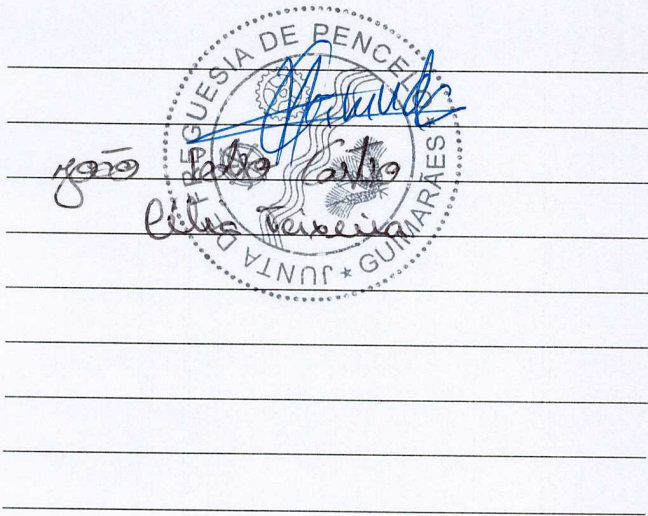 JUNTA DE FREGUESIA DE PENCELO * GUIMARÃES *
João Pedro Castro
Célia Teixeira